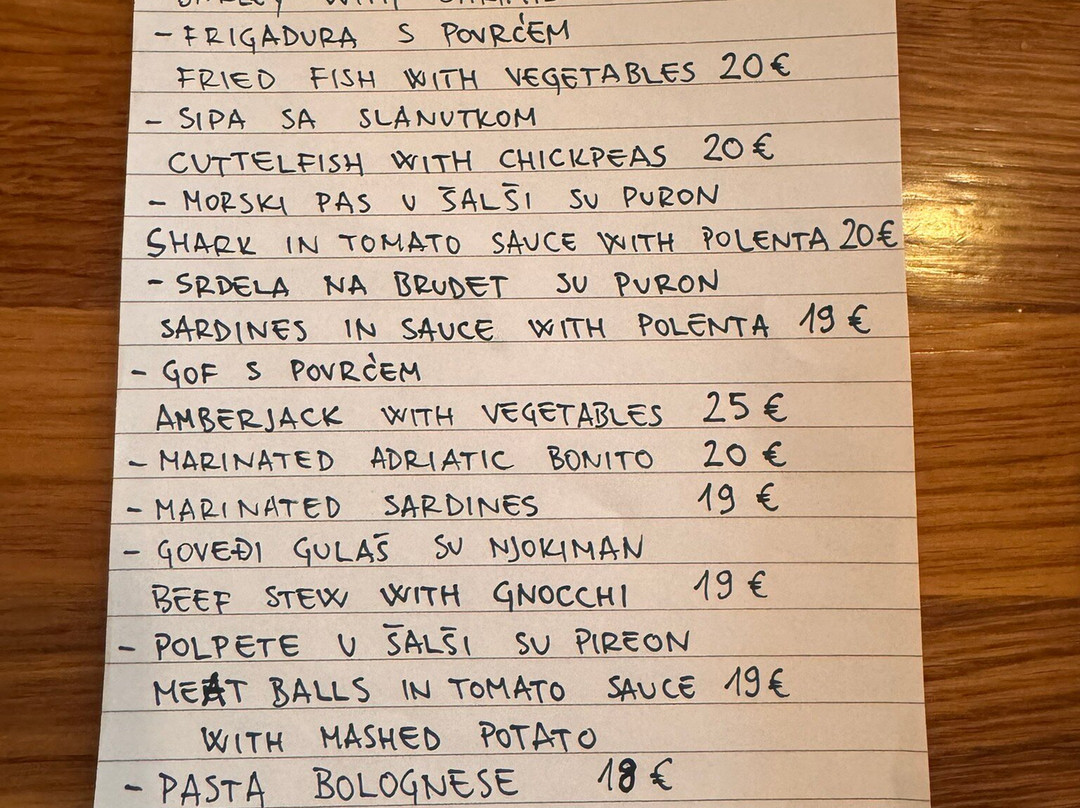 - FRIGADURA S POVRĆEM
FRIED FISH WITH VEGETABLES 20€
- SIPA SA SLANUTKOM
CUTTELFISH WITH CHICKPEAS 20€
- MORSKI PAS U ŠALŠI SU PURON
SHARK IN TOMATO SAUCE WITH POLENTA 20€
- SRDELA NA BRUDET SU PURON
SARDINES IN SAUCE WITH POLENTA 19€
- GOF S POVRĆEM
AMBERJACK WITH VEGETABLES 25€
- MARINATED ADRIATIC BONITO 20€
- MARINATED SARDINES 19€
- GOVEĐI GULAŠ SU NJOKIMAN
BEEF STEW WITH GNOCCHI 19€
- POLPETE U ŠALŠI SU PIREON
MEAT BALLS IN TOMATO SAUCE 19€
WITH MASHED POTATO
- PASTA BOLOGNESE 18€